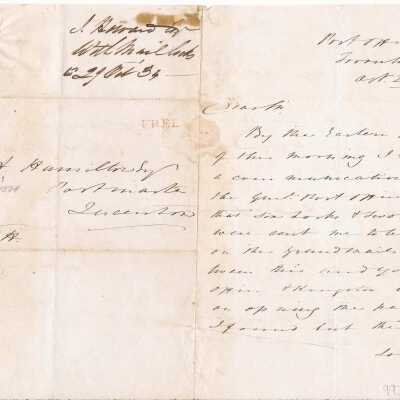 J. Howard
With Mail Locks
29 Oct 34
FREE
Hamilton Esq
Postmaster
Queenston
Post Offi
Toront
Oct 2
Dear Sir
By the Eastern
of this morning I
a communication
the Genl Post Office
that six Locks & two
were sent me to
on the Grand Mail
tween this and yo
Office & Kingston
on opening the
I found but the